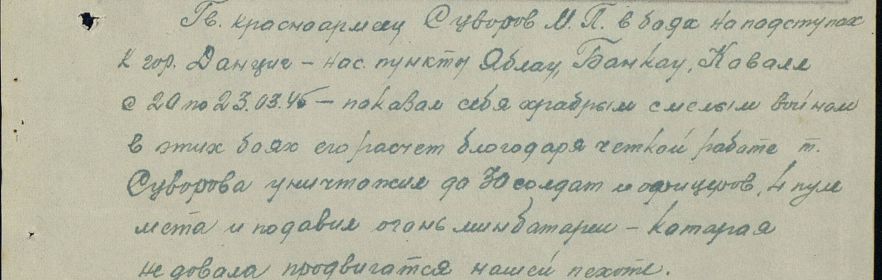 Гв. красноармеец Суворов М.П. в боях на подступах
к гор. Данциг – нас. пункты Яблау, Банкау, Ковалл
с 20 по 23.03.45 – показал себя храбрым смелым воином
в этих боях его расчет благодаря четкой работе т.
Суворова уничтожил до 30 солдат и офицеров, 4 пуле
мета и подавил огонь минбатареи – катарая
не довала продвигатся нашей пехоте.